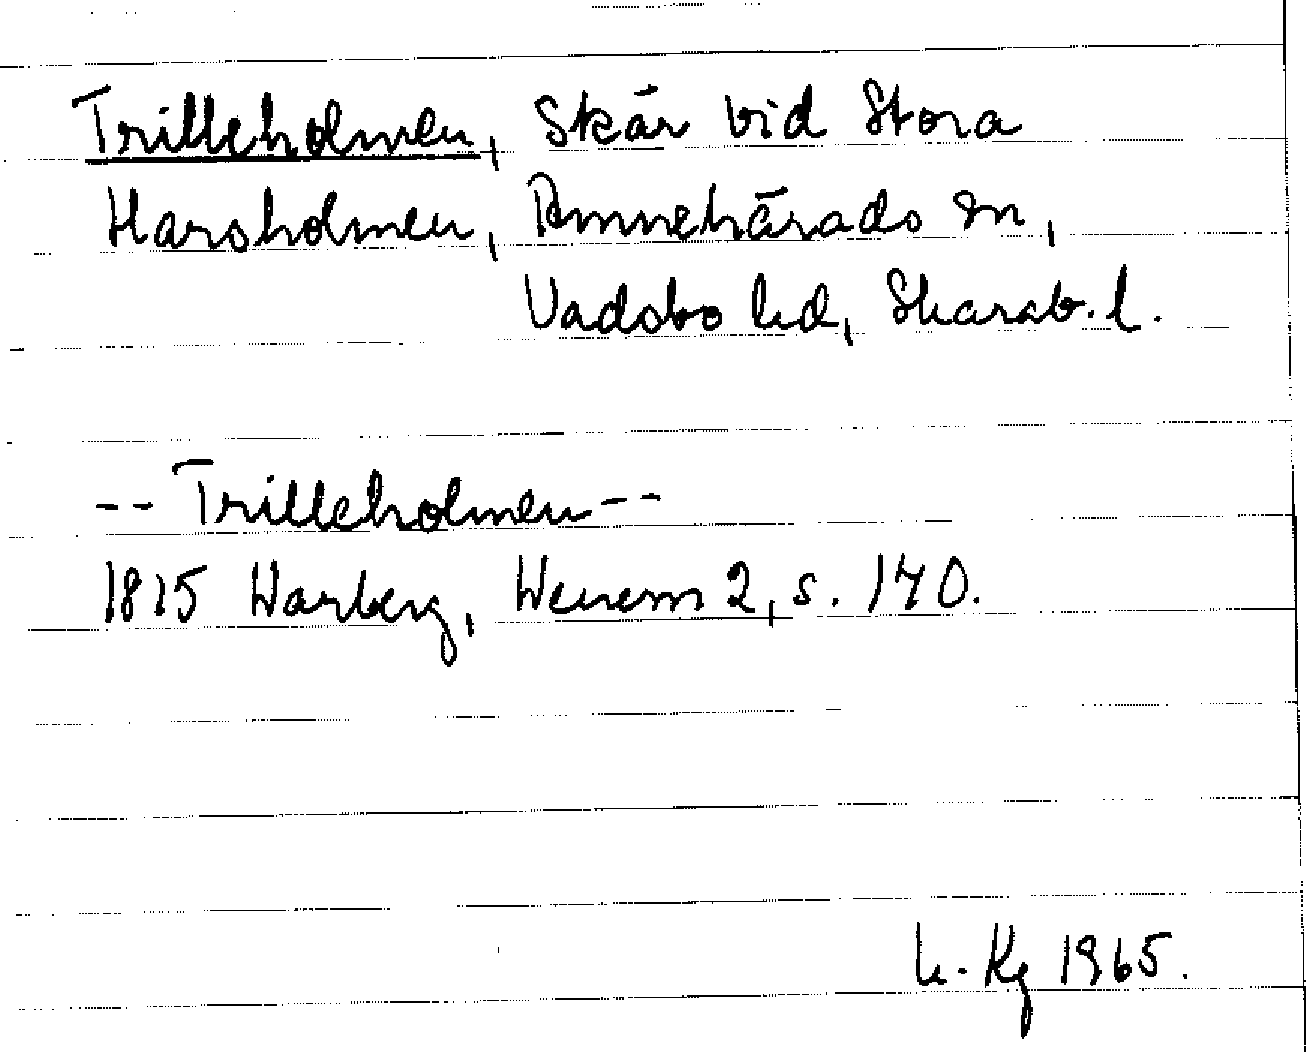 Trilleholmen, Skär vid Stora
Harsholmen, Amnehärads sn,
Vadsbo hd, Skarab. l.
-- Trilleholmen --
1815 Warberg, Wenern 2, s. 140.
L. Kg 1965.